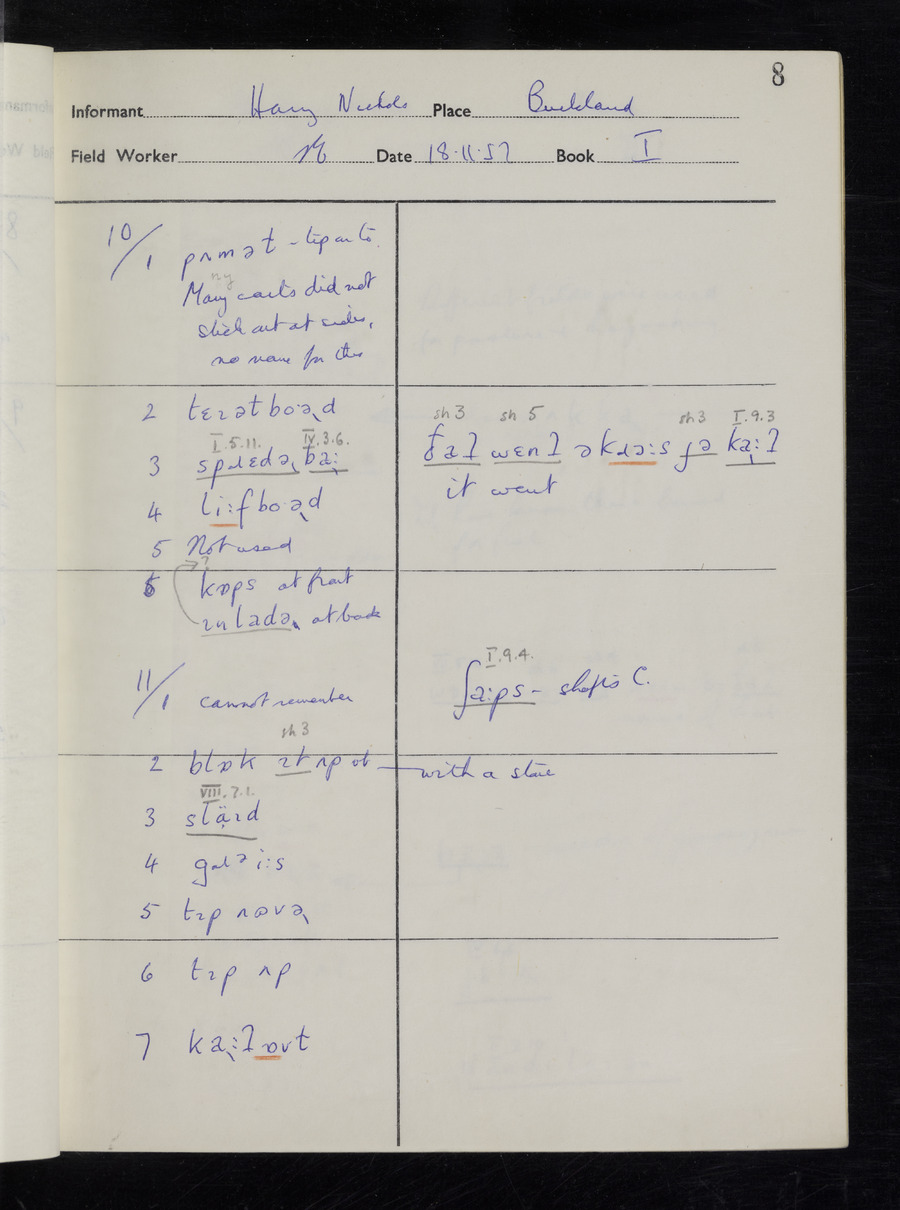 8
Informant Harry Nichols Place Buckland
Field Worker Date 18.11.57 Book I
10/1 pʌmət - tip carts
ny
Many carts did not
stick out at sides,
no name for this
2 tɛɪətboəd
I.5.11. IV.3.6.
3 spɹɛdə ba:
4 li:fboəd
5 Not used
?
6 kɒps at front
ɪnladə at back
sh 3 sh 5 sh 3 I.9.3
it went
11/1 cannot remember
I.9.4.
ʃa:ps - shafts C.
sh 3
2 blɒk ɪt ʌp ət — with a stone
VIII.7.1.
3 släɪd
4 gɹəi:s
5 tɪp ʌɒvə
6 tɪp ʌp
7